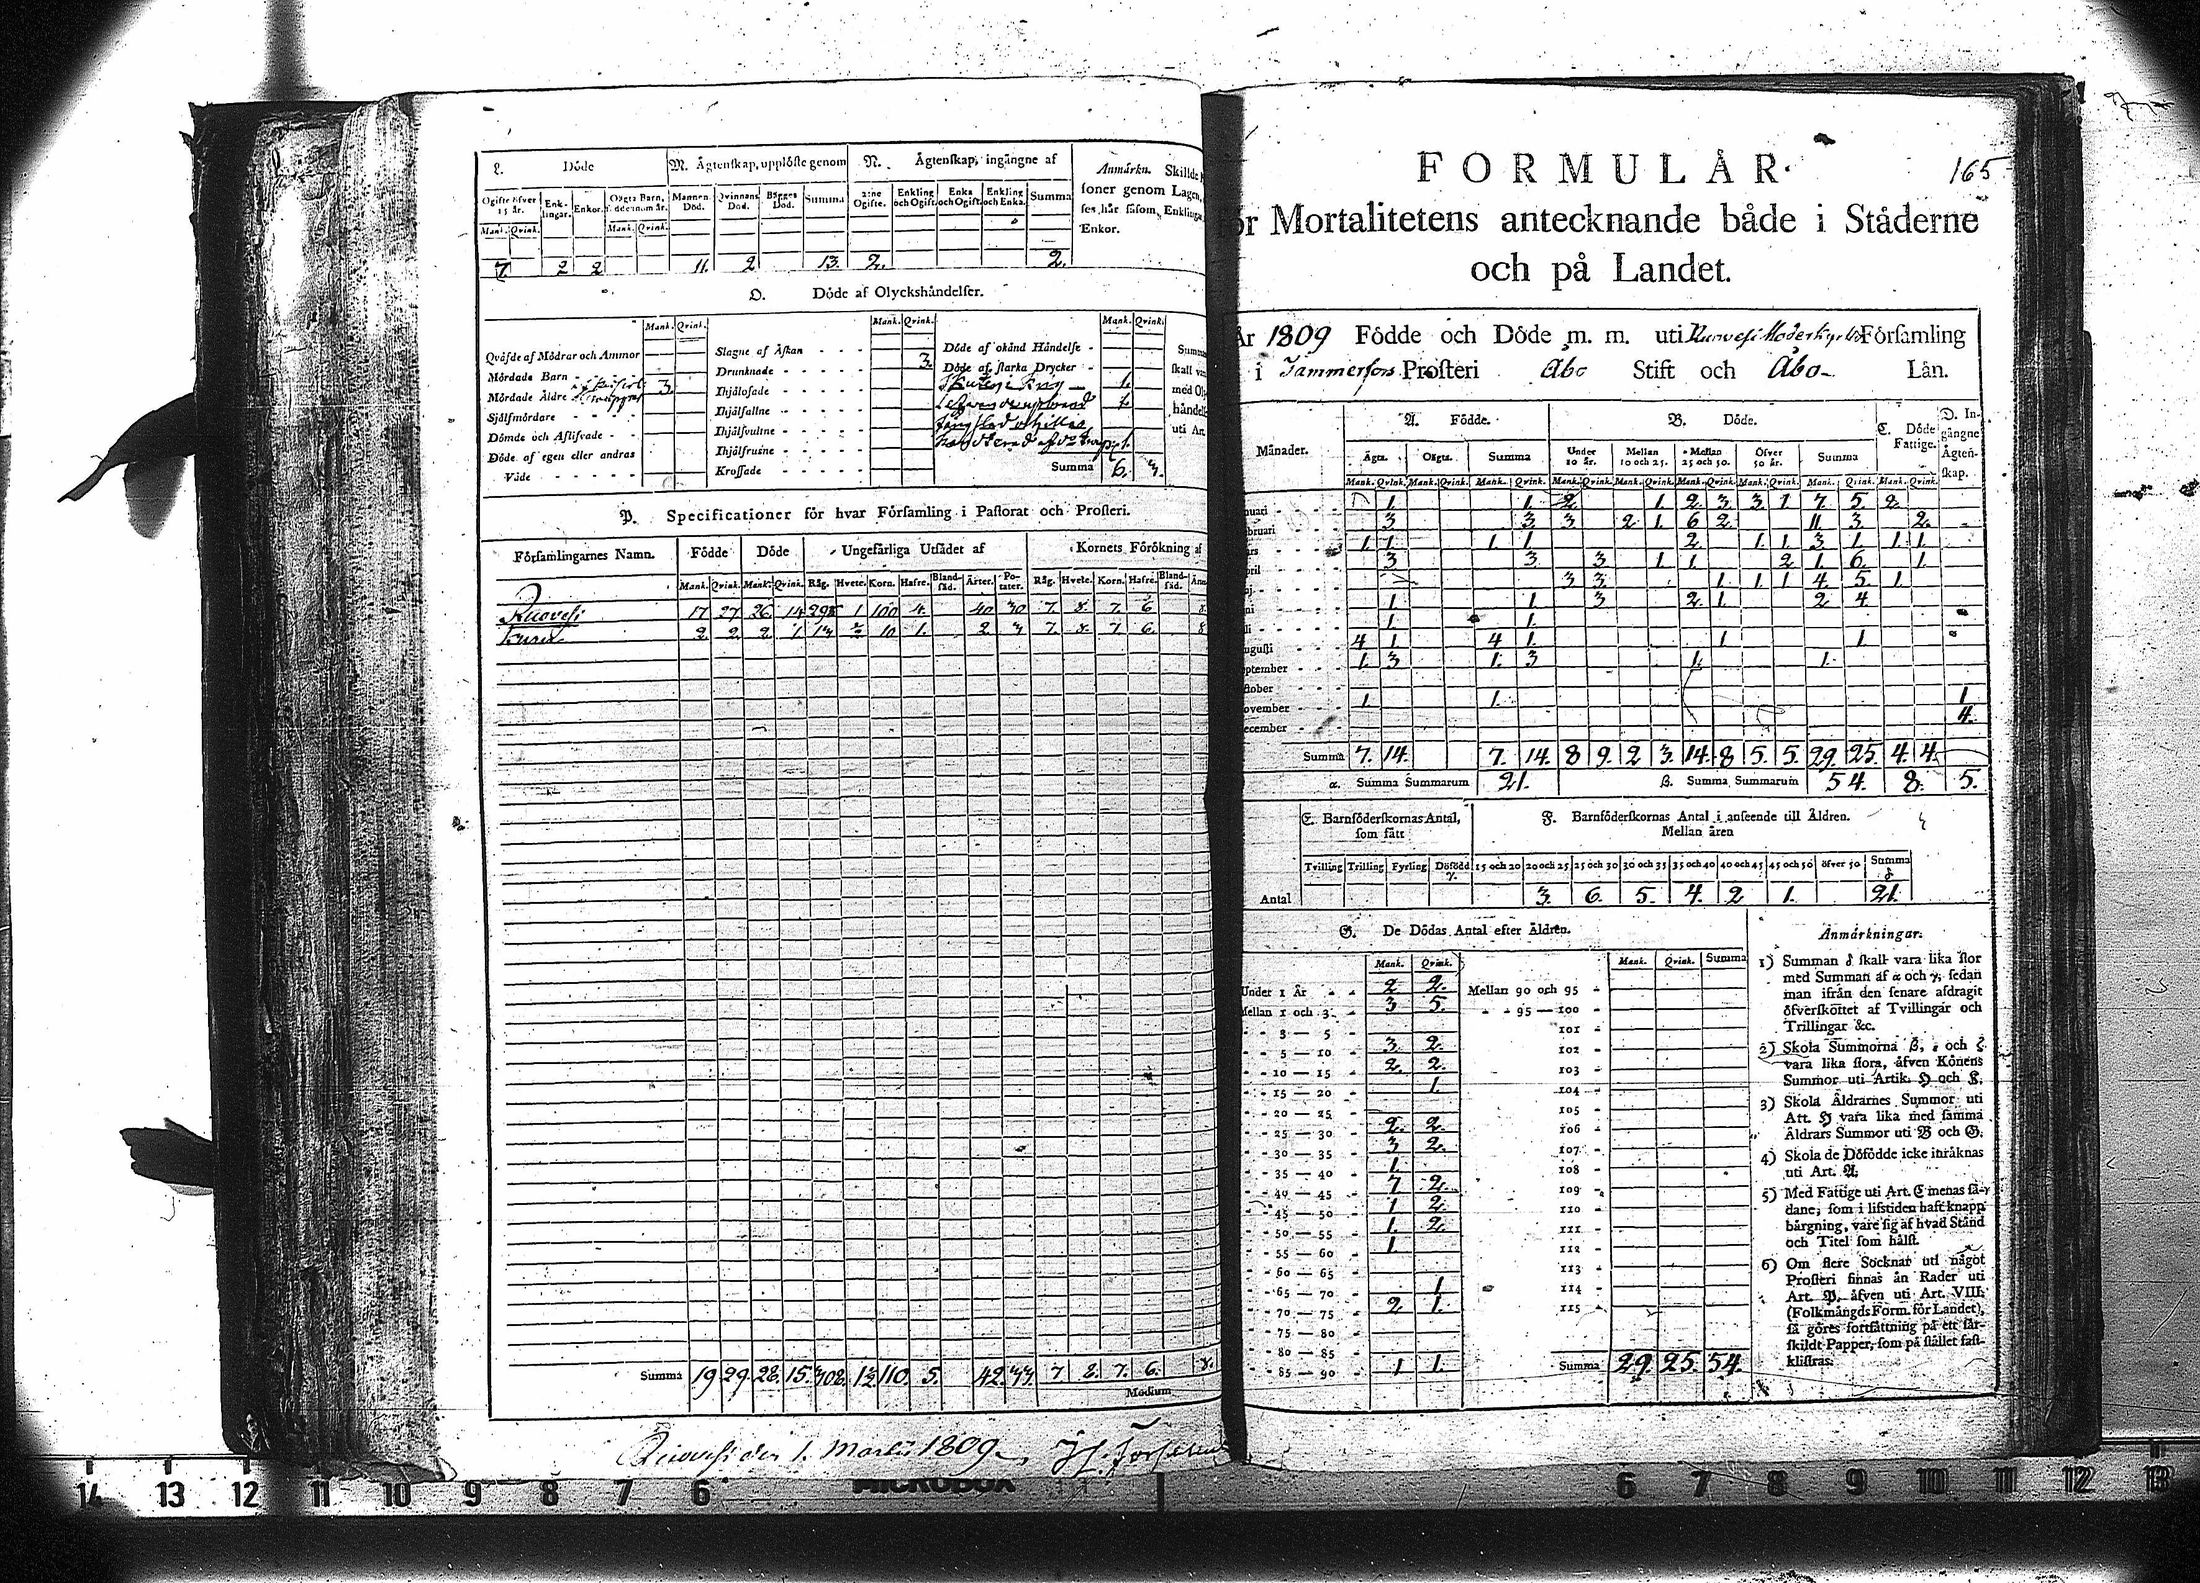 L. Döde
M. Ägtenskap, upplöste genom
N. Ägtenskap, ingångne af
Anmärkn. Skillde
soner genom Lagen,
ses här såsom Enklingar
Enkor.
Ogifte öfver 15 år. Enklingar. Enkor. Oägta Barn, Mannens Död. Qvinnans Död. Bägges Död. Summa 2:ne Ogifte. Enkling och Ogift. Enka och Ogift. Enkling och Enka. Summa
Mank. Qvink. Mank. Qvink.
7. 2 2 11. 2 13. 2. 2.
O. Döde af Olyckshändelser.
Mank. Qvink. Mank. Qvink. Mank. Qvink.
Qväfde af Mödrar och Ammor
Mördade Barn - -
Mördade Äldre 3.
Självmördare - - - -
Dömde och Aflifvade - -
Döde af egen eller andras
Våde - - - - -
Slagne af Åskan - - - -
Drunknade - - - - 3.
Ihjälosade - - - -
Ihjälfallne - - - -
Ihjälsvultne - - - -
Ihjälfrusne - - - -
Krossade - - - -
Döde af okänd Händelse -
Döde af starka Drycker -
1.
1.
1.
Summa 6. 3.
P. Specificationer för hvar Församling i Pastorat och Prosteri.
Församlingarnes Namn. Födde Döde Ungefärliga Utsädet af Kornets Förökning af
Mank. Qvink. Mank. Qvink. Råg. Hvete. Korn. Hafre. Blandsäd. Ärter. Potater. Råg. Hvete. Korn. Hafre. Blandsäd.
Ruovesi 17 27 26 14 295 1 100 4. 40 30 7. 8. 7. 6 8.
2 2 2 1 13 ½ 10 1. 2 3 7. 8. 7. 6. 8
Summa 19 29. 28. 15. 308. 1½ 110. 5. 42. 33. 7 8. 7. 6. 8.
Medium
Ruovesi den 1. Martii 1809.
165
FORMULÄR
ör Mortalitetens antecknande både i Städerne
och på Landet.
År 1809 Födde och Döde m. m. uti Ruovesi Moderkyrko Församling
i Tammerfors Prosteri Åbo Stift och Åbo Län.
Månader. A. Födde. B. Döde. C. Döde Fattige. D. Ingångne Ägtenskap.
Ägta. Oägta. Summa Under 10 år. Mellan 10 och 25. Mellan 25 och 50. Öfver 50 år. Summa
Mank. Qvink. Mank. Qvink. Mank. Qvink. Mank. Qvink. Mank. Qvink. Mank. Qvink. Mank. Qvink. Mank. Qvink. Mank. Qvink.
nuari - 1. 1. 2. 1 2. 3. 3. 1 7. 5. 2.
bruari - 3 3. 3 2 1. 6 2 11. 3. 2.
ars - 1. 1. 1. 1. 2. 1. 1. 3 1. 1. 1.
pril - 3 3. 3 1 1 2 1. 6. 1.
aj - 3 3 1. 1. 1 4. 5 1.
ni - 1. 1. 3 2 1. 2 4.
li - 1. 1.
ugusti - 4 1. 4 1. 1. 1.
ptember - 1. 3 1. 3 1. 1.
ktober -
ovember - 1. 1. 1
ecember - 4.
Summa 7. 14. 7. 14. 8 9. 2 3. 14. 8 5. 5. 29. 25. 4. 4.
α. Summa Summarum 21. β. Summa Summarum 54. 8. 5.
E. Barnföderskornas Antal, som fått
F. Barnföderskornas Antal i anseende till Åldren.
Mellan åren
Tvilling Trilling Fyrling Dödfödd γ. 15 och 20 20 och 25 25 och 30 30 och 35 35 och 40 40 och 45 45 och 50 öfver 50 Summa δ
Antal 3. 6. 5. 4. 2 1. 21.
G. De Dödas Antal efter Åldren.
Mank. Qvink. Mank. Qvink. Summa
Under 1 År - - 2 2. Mellan 90 och 95 -
Mellan 1 och 3 - 3 5. - - 95 — 100 -
- - 3 — 5 - 101 -
- - 5 — 10 - 3. 2. 102 -
- - 10 — 15 - 2. 2. 103 -
- - 15 — 20 - 1. 104 -
- - 20 — 25 - 105 -
- - 25 — 30 - 2. 2. 106 -
- - 30 — 35 - 3 2. 107 -
- - 35 — 40 - 1. 108 -
- - 40 — 45 - 7 2. 109 -
- - 45 — 50 - 1 2. 110 -
- - 50 — 55 - 1. 2. 111 -
- - 55 — 60 - 1 112 -
- - 60 — 65 - 113 -
- - 65 — 70 - 1 114 -
- - 70 — 75 - 2 1. 115 -
- - 75 — 80 -
- - 80 — 85 -
- - 85 — 90 - 1 1. Summa 29. 25. 54.
Anmärkningar.
1) Summan δ skall vara lika stor
med Summan af α och γ, sedan
man ifrån den senare afdragit
öfverskottet af Tvillingar och
Trillingar &c.
2) Skola Summorna β, ε och ζ
vara lika stora, äfven Könens
Summor uti Artik. H och L.
3) Skola Åldrarnes Summor uti
Art. H vara lika med samma
Åldrars Summor uti B och G.
4) Skola de Döfödde icke inräknas
uti Art. A.
5) Med Fattige uti Art. C menas så-
dane, som i lifstiden haft knapp
bärgning, vare sig af hvad Stånd
och Titel som hälst.
6) Om flere Socknar uti något
Prosteri finnas än Rader uti
Art. P, äfven uti Art. VIII.
(Folkmängds Form. för Landet),
så göres fortsättning på ett sär-
skildt Papper, som på stället fast-
klistras.
14 13 12 11 10 9 8 7 6 MICROBOX 6 7 8 9 10 11 12 13